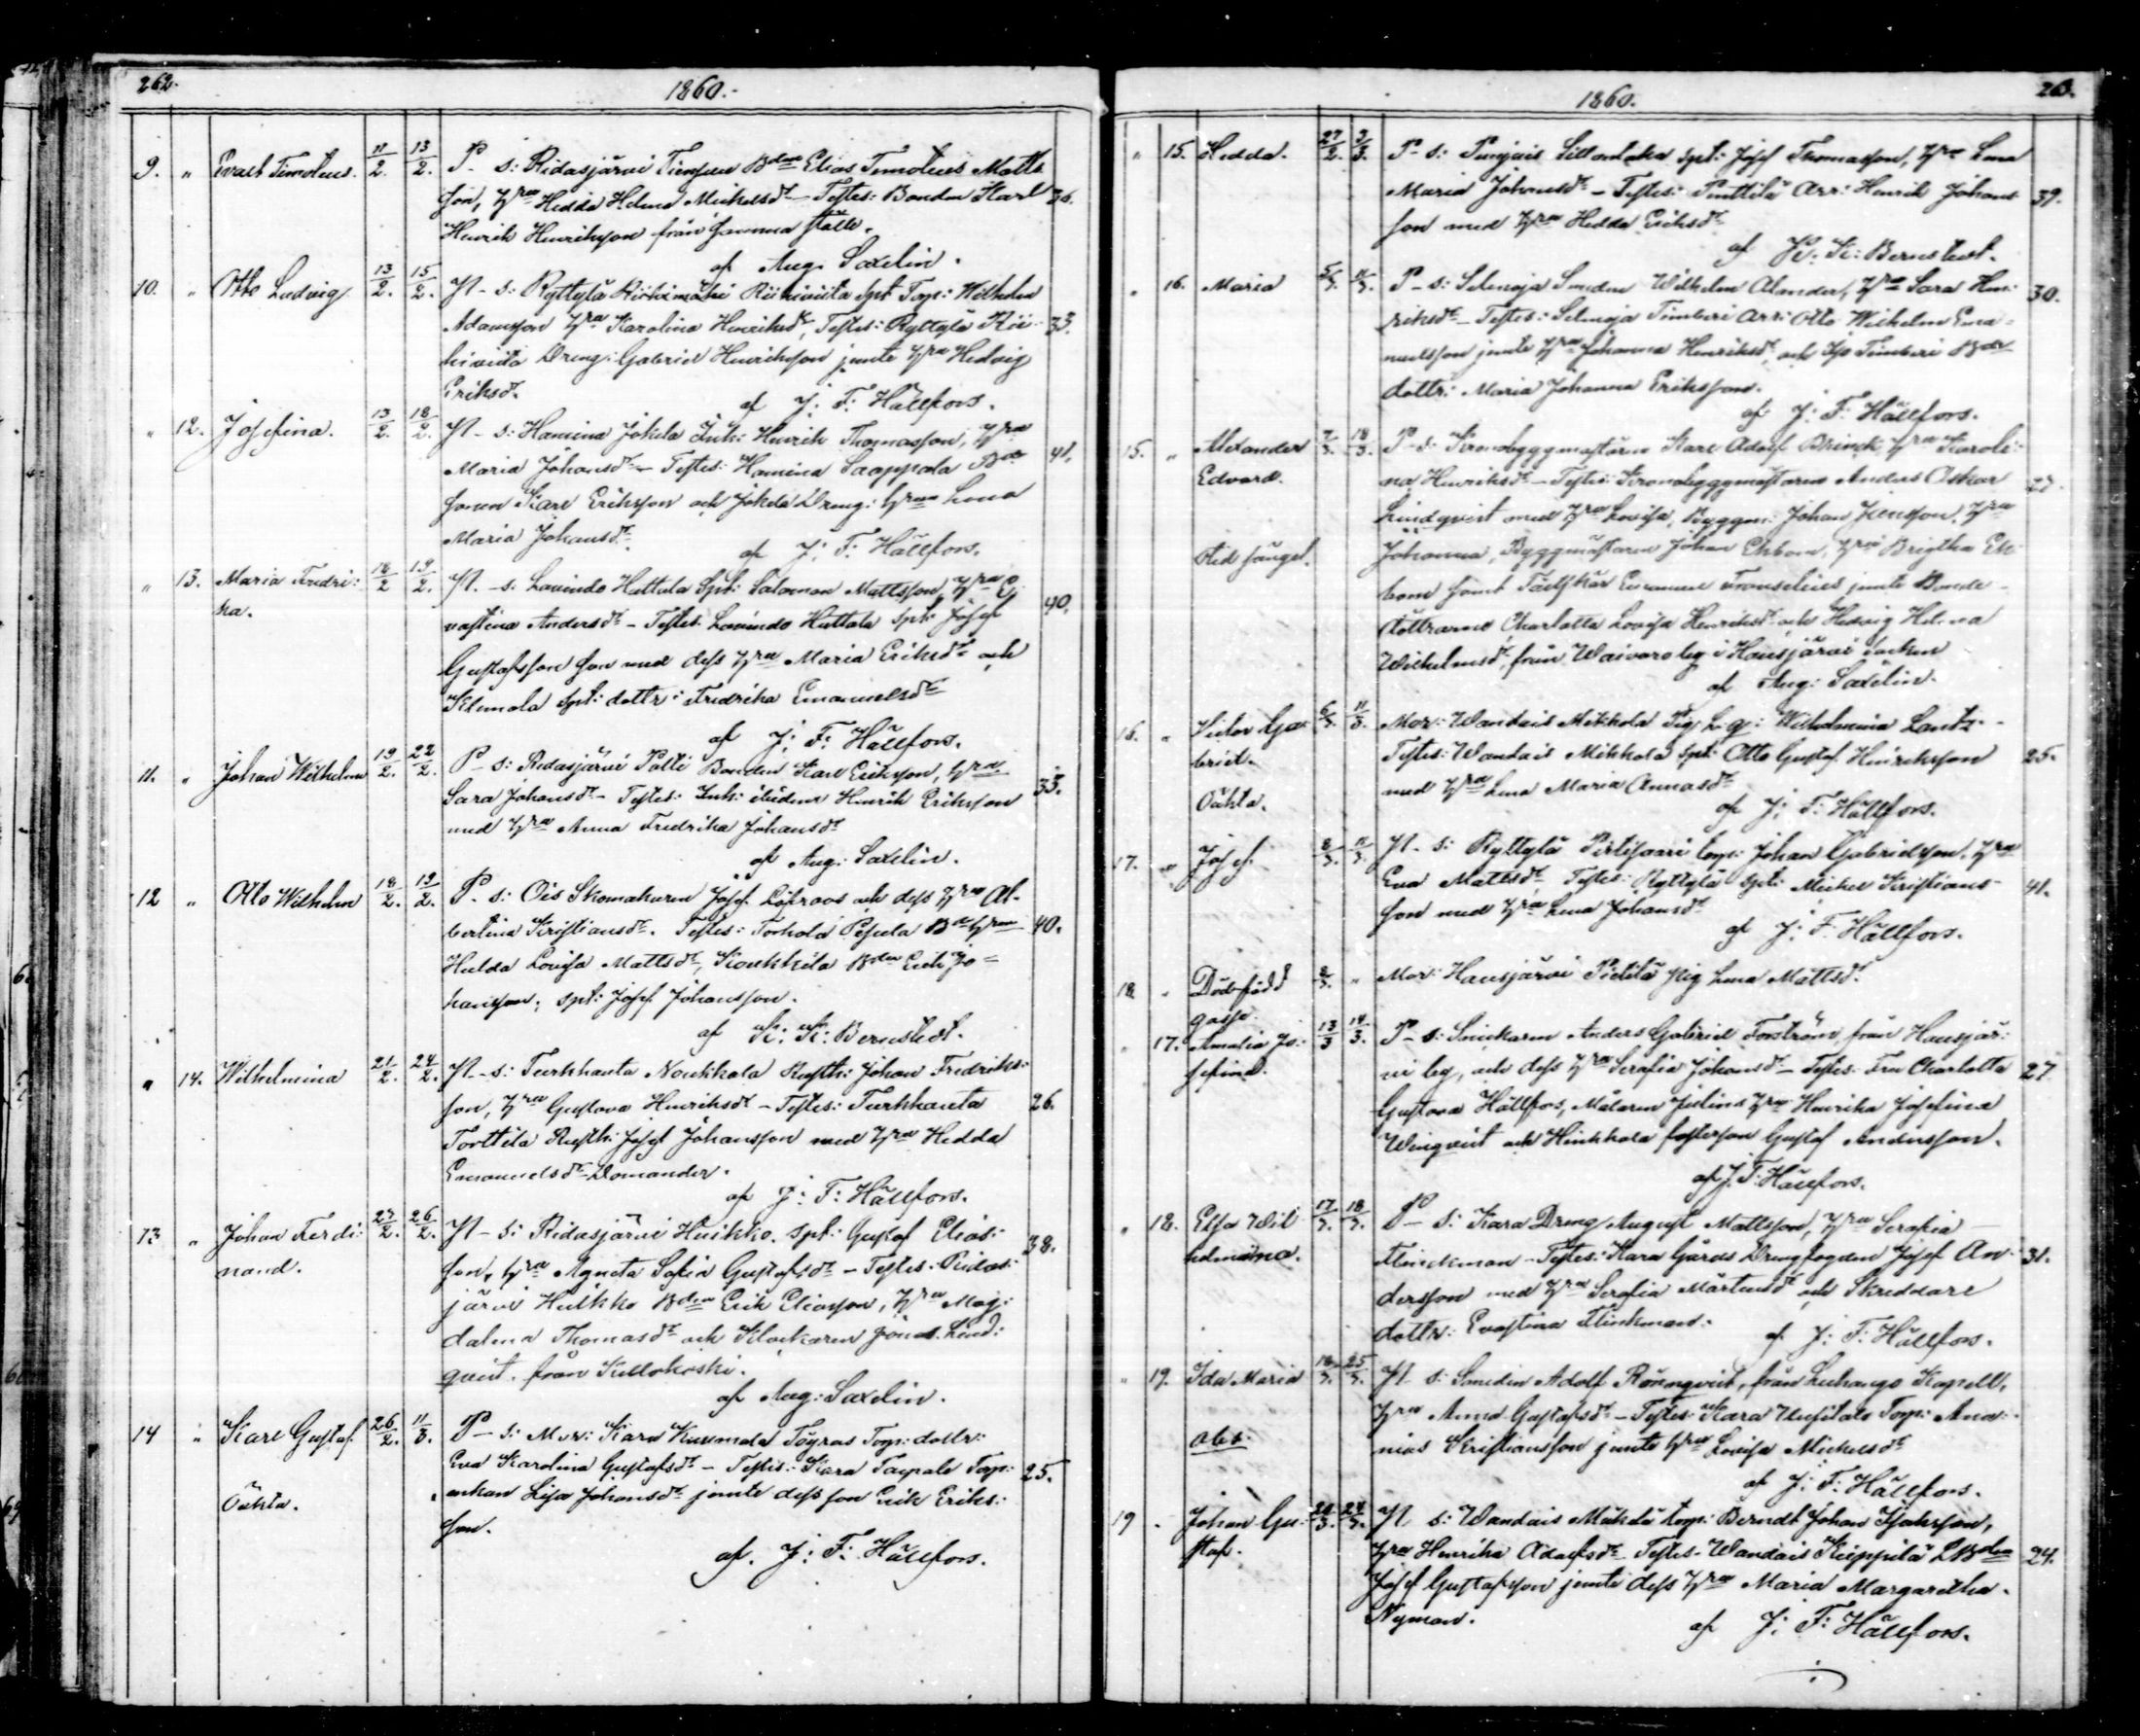 262.
1860.
9. " Evart Timoteus. 11/2. 13/2. P. s: Ridasjärvi Bdn Elias Timoteus Matts
son, Hru Hedda Helena Michelsdr - Testes: Bonden Karl 36.
Henrik Henriksson från samma ställe.
af Aug. Saxelin.
10. " Otto Ludvig 13/2. 15/2. N. s: Ryttylä Torp: Wilhelm
Adamsson Hru Karolina Henriksdr, Testes: Ryttylä 33.
Dreng: Gabriel Henriksson jemte Hru Hedvig
Eriksdr.
af J: F: Hällfors.
" 12. Josefina. 13/2. 18/2. N. s: Hamina Jokela Inh: Henrik Thomasson, Hru
Maria Johansdr - Testes: Hamina Saappala 41.
sonen Karl Eriksson och Jokela Dreng: Hrun Lena
Maria Johansdr.
af J: F: Hällfors.
" 13. Maria Fredri: 18/2 19/2. N. s: Lavindo Huttula Spt: Salomon Mattsson, Hru
ka. Andersdr - Testes: Lavindo Huttula Spt: Josef 40.
Gustafsson son med dess Hru Maria Eriksdr och
Spt: dottr: Fredrika Emanuelsdr
af J: F: Hällfors.
11. " Johan Wilhelm 19/2. 22/2. P. s: Ridasjärvi Patti Bonden Karl Eriksson, Hru
Sara Johansdr - Testes: Inh: Henrik Eriksson 33.
med Hru Anna Fredrika Johansdr
af Aug: Saxelin.
12 " Otto Wilhelm 18/2. 19/2. P. s: Ois Skomakaren Josef Löfroos och dess Hru Al-
bertina Kristiansdr. Testes: 40.
Hulda Lovisa Mattsdr, Konkkila Bdn Erik Jo-
hansson, spt: Josef Johansson.
af K: K: Bernstedt.
" 14. Wilhelmina 21/2. 24/2. N. s: Turkhauta Noukkala Rusth: Johan Fredriks:
son, Hru Gustava Henriksdr - Testes: Turkhauta 26.
Torttila Rusth: Josef Johansson med Hru Hedda
Emanuelsdr Domander.
af J: F: Hällfors.
13 " Johan Ferdi: 23/2. 26/2. N. s: Ridasjärvi Huikko. spt: Gustaf Elias: 38.
nand. son, Hru Agneta Sofia Gustafsdr - Testes: Ridas:
järvi Huikko Bdn Erik Eliasson, Hru Mag:
dalena Thomasdr och Klockaren Jonas Lind:
qvist från Kellokoski.
af Aug: Saxelin.
14 " Karl Gustaf. 26/2. 11/3. P. s: Mor: Kara Torp: dottr:
Eva Karolina Gustafsdr - Testes: Kara Taipale Torp: 25.
Oäkta. enkan Lisa Johansdr jemte dess son Erik Eriks:
son.
af. J: F: Hällfors.
1860. 263.
" 15. Hedda. 27/2. 3/3. P. s: Punjais spt: Josef Thomasson, Hru Lena
Maria Johansdr - Testes: Punttila Arr: Henrik Johans 39.
son med Hru Hedda Eriksdr
af K: K: Bernstedt.
" 16. Maria 5/3. 11/3. P. s: Selenoja Smeden Wilhelm Alander, Hru Sara Hen: 30.
riksdr - Testes: Selenoja Arr: Otto Wilhelm Ema-
nuelsson jemte Hru Johanna Henriksdr, och
dottr: Maria Johanna Eriksson.
af J: F: Hällfors.
15. " Alexander 7/3. 18/3. P. s: Kronobyggmästaren Karl Adolf Brinck, Hru Karoli:
Edvard. na Henriksdr - Testes: Kronobyggmästaren Anders Oskar 27.
Lindqvist med Hru Lovisa, Byggm: Johan Jensson, Hru
Johanna, Byggmästaren Johan Ekbom, Hru Brigtha Ek
bom samt Fältskär Emanuel jemte Bonde-
döttrarne Charlotta Lovisa Henriksdr och Hedvig Helena
Wilhelmsdr från by i Hausjärvi socken
af Aug: Saxelin.
16. " Victor Ga: 6/3. 11/3. Mor: Wandais Mikkola Pig: Wilhelmina Lantz. -
briel. Testes: Wandais Mikkola Spt: Otto Gustaf Henriksson 25.
Oäkta. med Hru Lena Maria Annasdr
af J: F: Hällfors.
17. " Josef. 8/3. 11/3. N. s: Ryttylä Pirtisaari Torp: Johan Gabrielsson, Hru
Eva Mattsdr, Testes: Ryttylä spt: Mickel Kristians- 41.
son med Hru Lena Johansdr
af J: F: Hällfors.
18. " Dödfödd 8/3. " Mor: Hausjärvi Pietilä Pig Lena Mattsdr.
gosse.
" 17. Amalia Jo: 13/3 14/3. P. s: Snickaren Anders Gabriel Forström från Hausjär:
sefina. vi by, och dess Hru Serafia Johansdr - Testes: Fru Charlotta 27
Gustava Hällfors, Målaren Julins Hru Henrika Josefina
Winqvist och Hinkkala fosterson Gustaf Andersson.
af J: F: Hällfors.
" 18. Elsa Wil 17/3. 18/3. P. s: Kara Dreng August Mattsson, Hru Serafia
helmina. Flinckman - Testes: Kara Gårds Drengfogden Josef An- 31.
dersson med Hru Serafia Mårtensdr och Skreddare
dottr: Evastina Flinkman.
af J: F: Hällfors.
" 19. Ida Maria 18/3. 25/3. N. s: Smeden Adolf Rönnqvist, från Kapell,
Hru Anna Gustafsdr - Testes: Kara Uusitalo Torp: Ana:
obs: nias Kristiansson jemte Hru Lovisa Mickelsdr
af J: F: Hällfors.
19 " Johan Gu: N. s: Wandais Mäkelä torp: Berndt Johan
staf. Hru Henrika Adolfsdr Testes: Wandais 24.
Josef Gustafsson jemte dess Hru Maria Margaretha
Nyman.
af J: F: Hällfors.